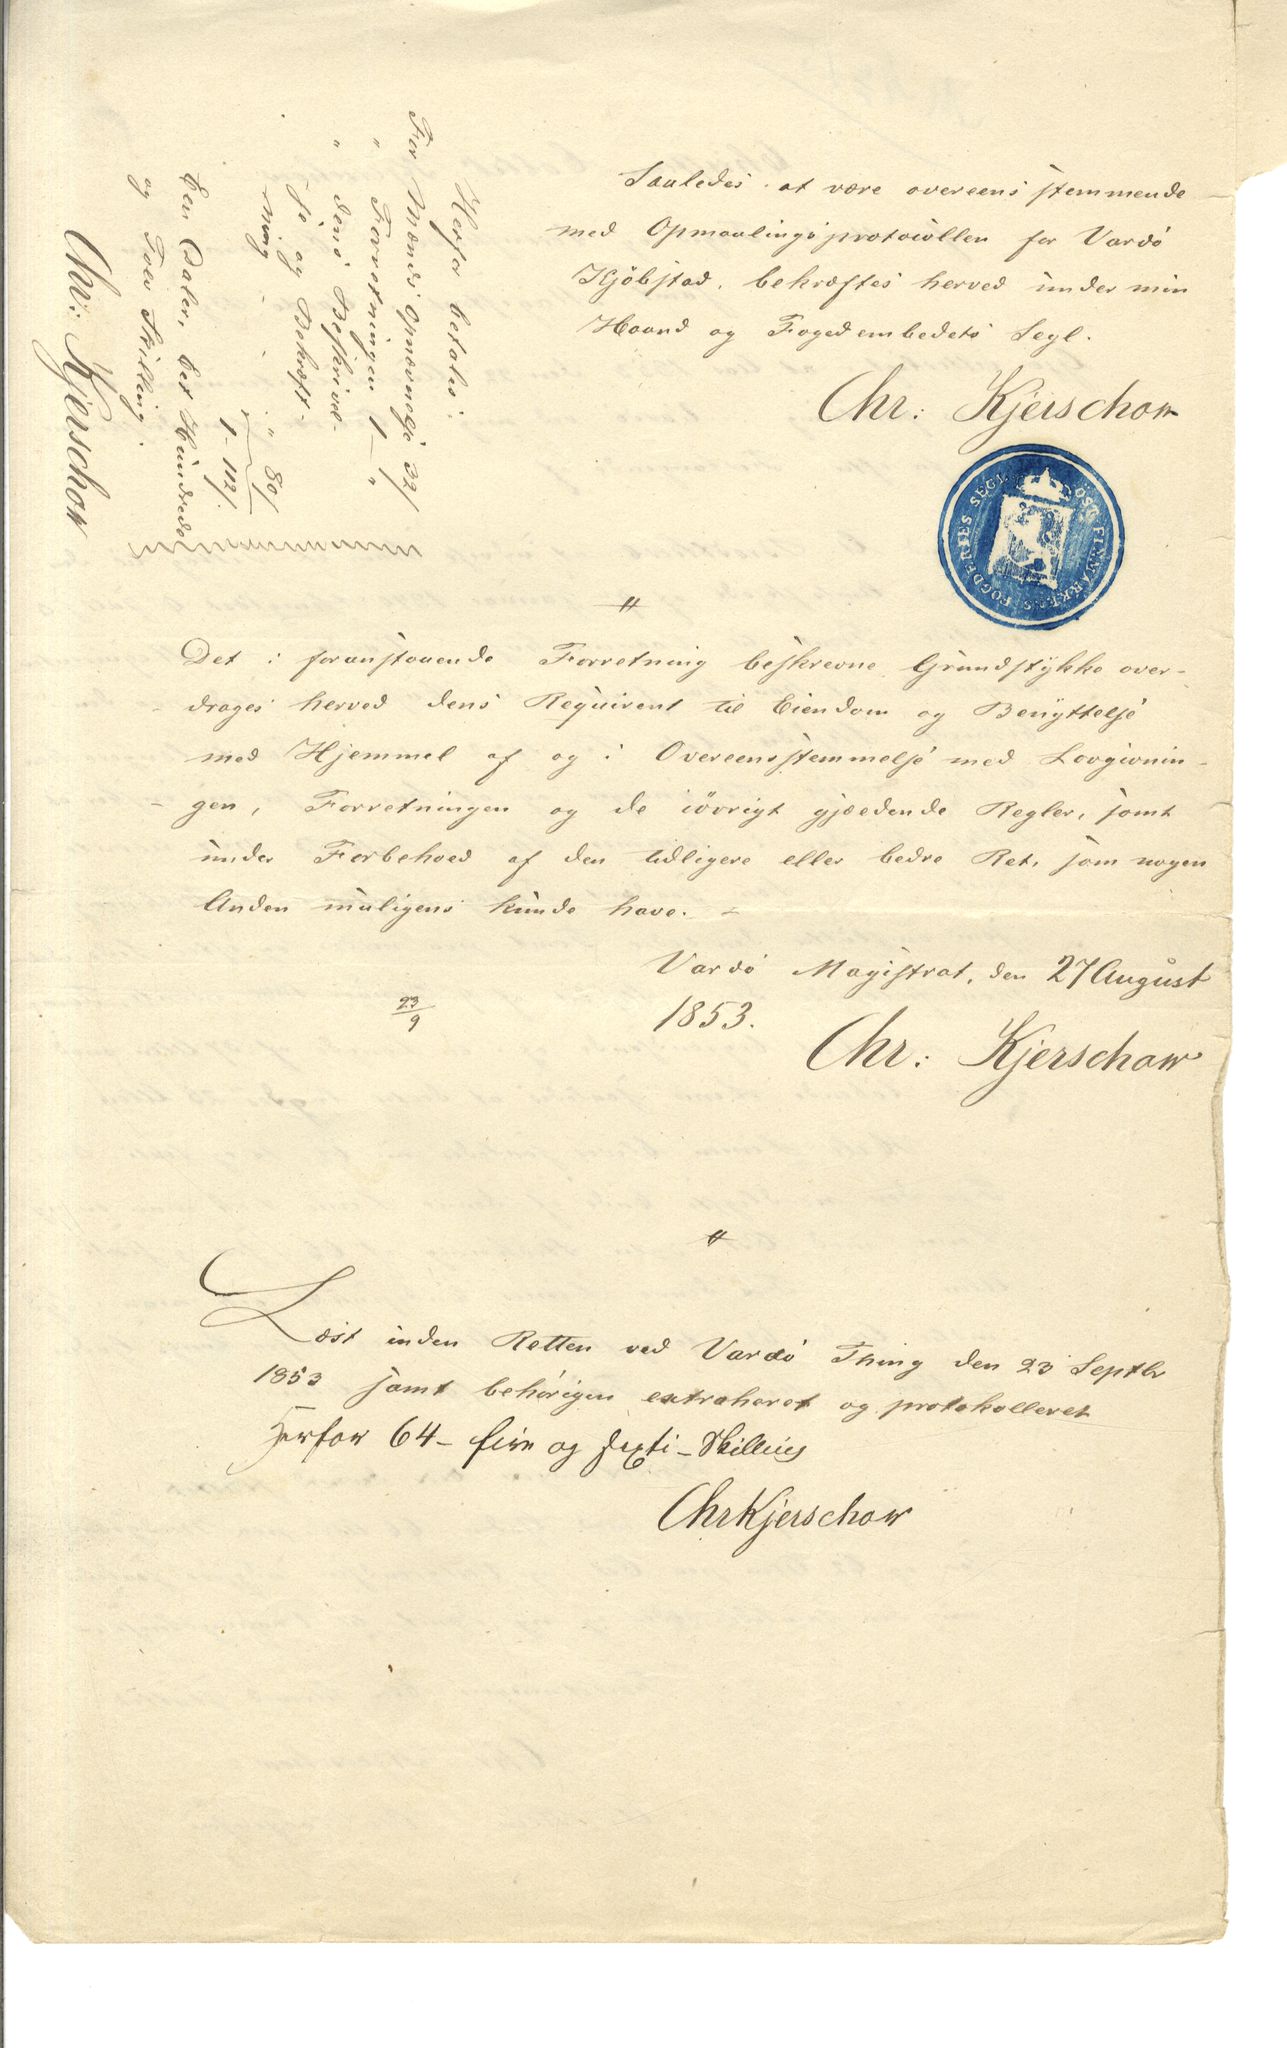 Saaledes at være overeensstemmende
med Opmaalingsprotocollen for Vardö
Kjöbstad, bekræftes herved under min
Haand og Fogedembedets Segl.
Chr: Kjerschow
ÖST FINMARKENS FOGDERIES SEGL
Herfor betales:
For Mænds Opnævnelse 32/
" Forretningen 1 - "
" dens Beskrivel-
se og Bekræft-
ning - - - " 80/
1 - 112/.
Een Daler, Eet Hundrede
og Tolv Skilling.
Chr: Kjerschow
Det i foranstaaende Forretning beskrevne Grundstykke over-
drages herved dens Requirent til Eiendom og Benyttelse
med Hjemmel af og i Overeensstemmelse med Lovgivnin-
gen, Forretningen og de iövrigt gjældende Regler, samt
under Forbehold af den tidligere eller bedre Ret, som nogen
Anden muligens kunde have. -
Vardö Magistrat, den 27 August
1853.
23/9
Chr: Kjerschow
Læst inden Retten ved Vardö Thing den 23 Septbr
1853 samt behörigen extraheret og protokolleret
Herfor 64 - fire og sexti - Skilling
Chr Kjerschow